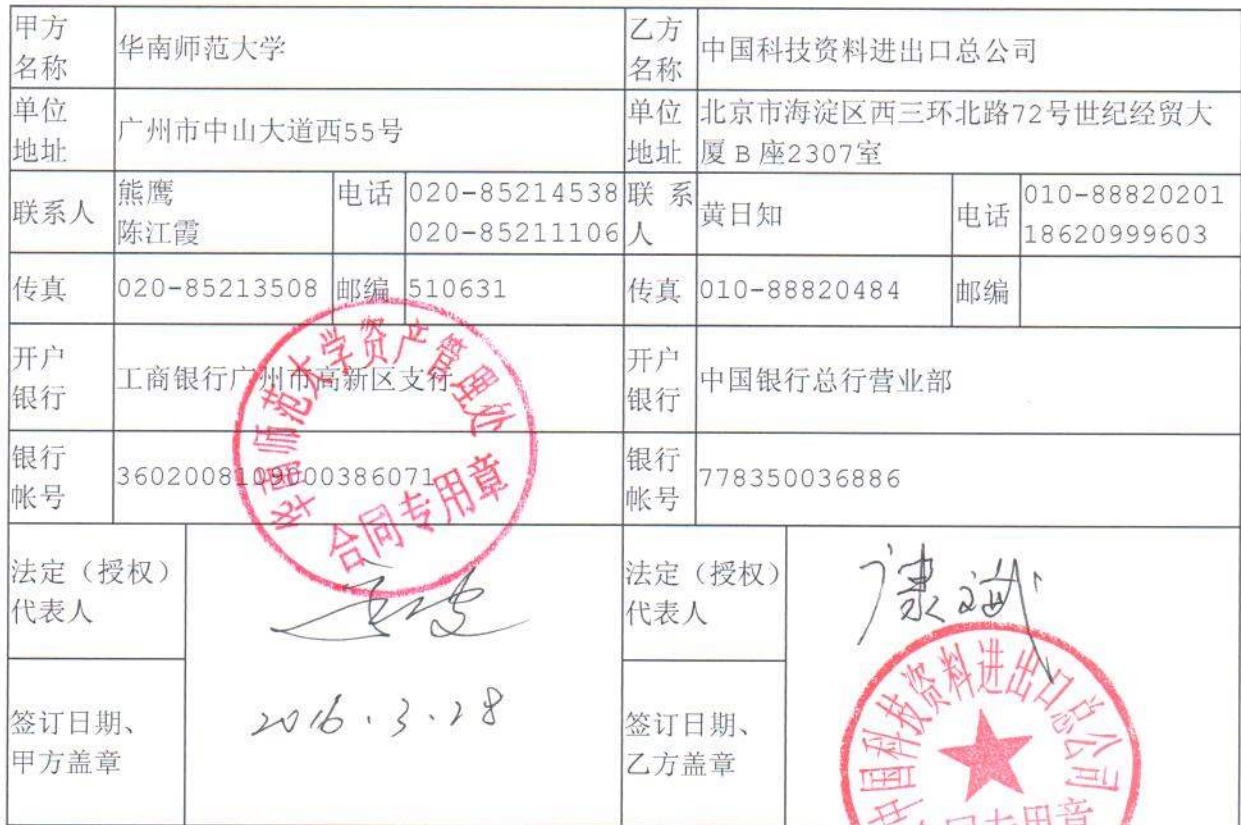 甲方
名称
华南师范大学
乙方
名称
中国科技资料进出口总公司
单位
地址
广州市中山大道西55号
单位
地址
北京市海淀区西三环北路72号世纪经贸大
厦 B 座2307室
联系人
熊鹰
陈江霞
电话
020-85214538
020-85211106
联 系
人
黄日知
电话
010-88820201
18620999603
传真
020-85213508
邮编
510631
传真
010-88820484
邮编
开户
银行
工商银行广州市高新区支行
开户
银行
中国银行总行营业部
银行
帐号
3602008109000386071
银行
帐号
778350036886
华南师范大学资产管理处
合同专用章
法定（授权）
代表人
法定（授权）
代表人
签订日期、
甲方盖章
2016.3.28
签订日期、
乙方盖章
中国科技资料进出口总公司
合同专用章